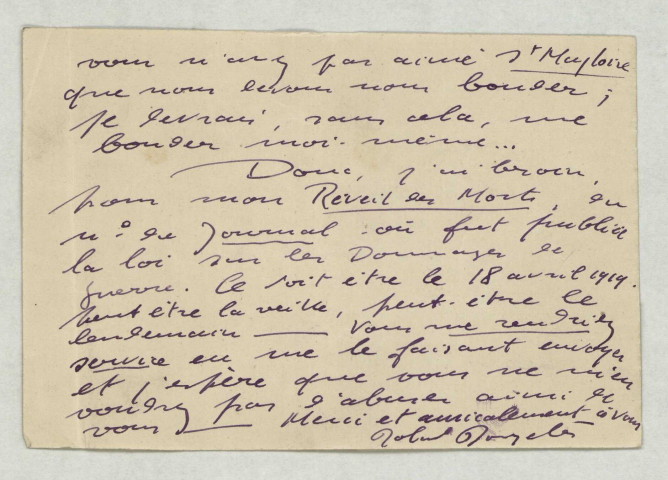 vous n'avez pas aimé St Magloire
que nous devons nous bouder ;
je devrais, sans cela, me
bouder moi-même...
Donc, j'ai besoin,
pour mon Réveil des Morts, du
n° du Journal où fut publiée
la loi sur les Dommages de
guerre. Ce doit être le 18 avril 1919.
Peut être la veille, peut-être le
lendemain — Vous me rendriez
service en me le faisant envoyer
et j'espère que vous ne m'en
voudrez pas d'abuser ainsi de
vous — Merci et amicalement à vous
Roland Dorgelès